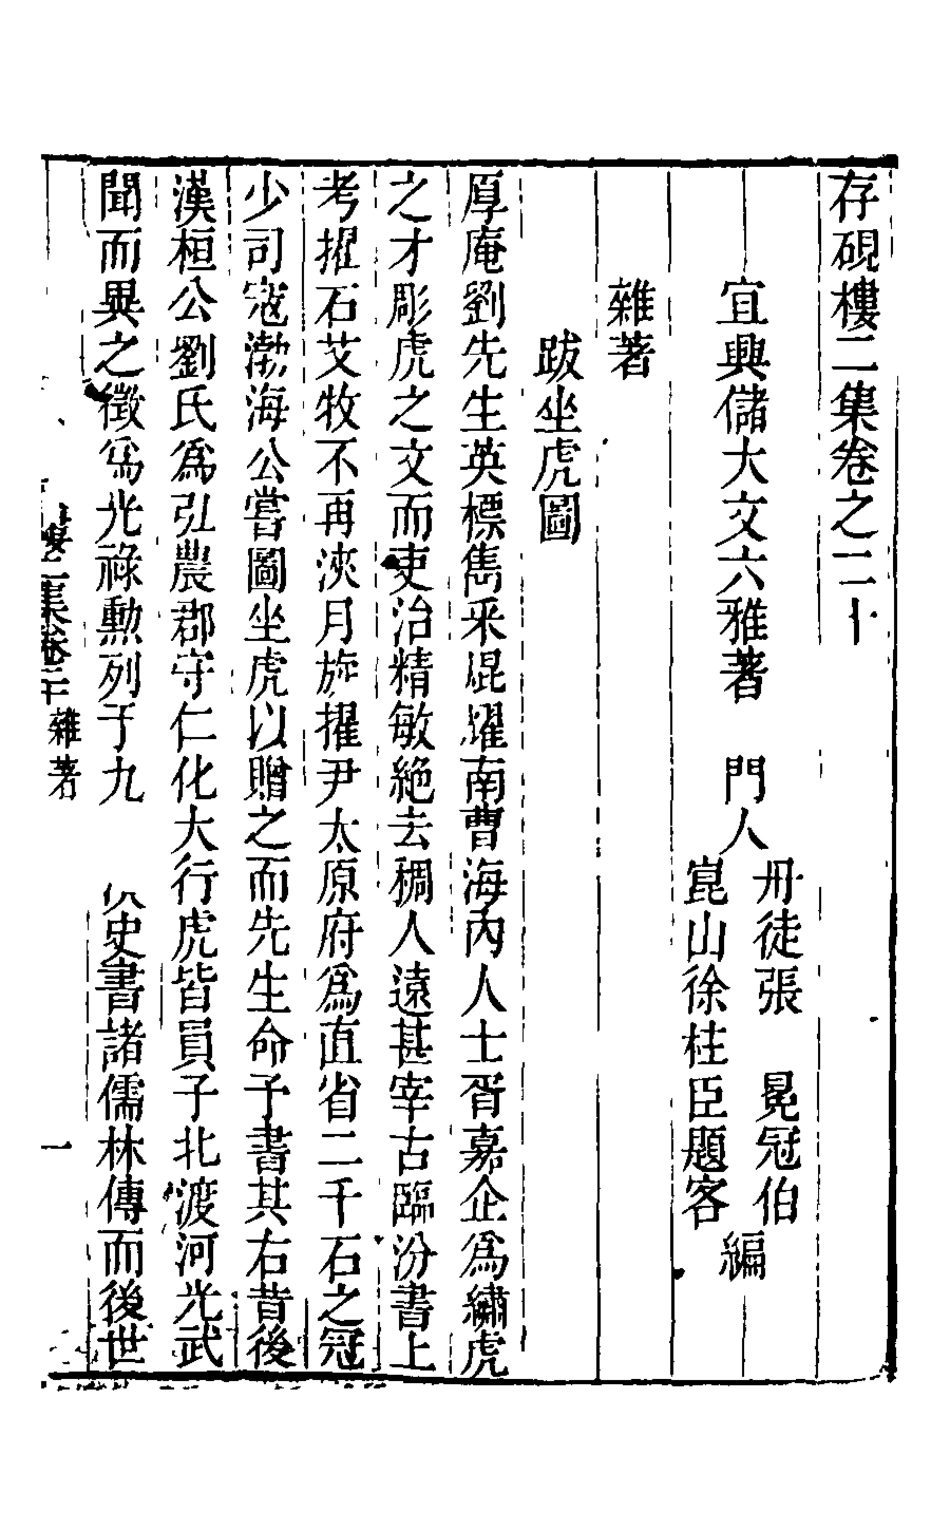 存硯樓二集卷之二十
宜興儲大文六雅著　門人
丹徒張　冕冠伯
崑山徐柱臣題客
編
雜著
跋坐虎圖
厚庵劉先生英標雋采焜耀南曹海內人士胥嘉企爲繡虎
之才彫虎之文而吏治精敏絕去稠人遠甚宰古臨汾書上
考擢石艾牧不再浹月旋擢尹太原府爲直省二千石之冠
少司寇渤海公嘗圖坐虎以贈之而先生命予書其右昔後
漢桓公劉氏爲弘農郡守仁化大行虎皆員子北渡河光武
聞而異之徵爲光祿勲列于九　史書諸儒林傳而後世
二集卷二十　雜著
一